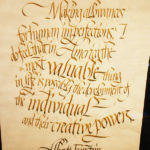 Making allowances
for human imperfections, I
do feel that in America the
most valuable thing
in life is possible, the development of
the individual
and their creative power.
Albert Einstein